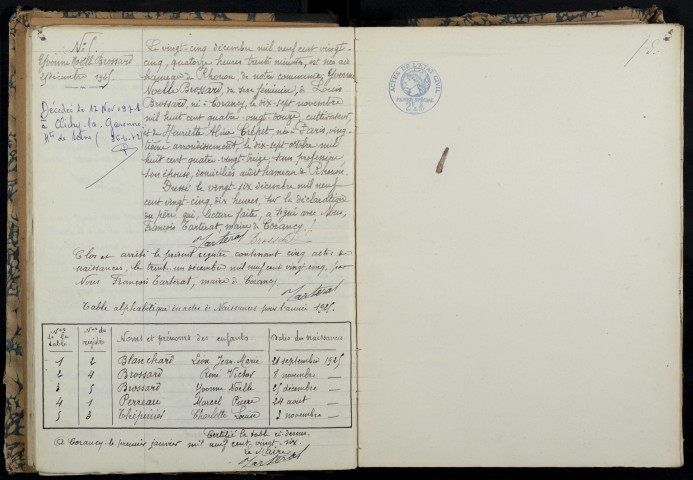 N° 5.
Yvonne Noëlle Brossard
25 décembre 1925
Décédée le 17 Nov 1971
à Clichy-la-Garenne
Hts de Seine
Le vingt-cinq décembre mil neuf cent vingt-
cinq, quatorze heures trente minutes, est née au
hameau de Rhonon de notre commune, Yvonne
Noëlle Brossard, du sexe féminin, de Louis
Brossard, né à Corancy, le dix-sept novembre
mil huit cent quatre-vingt-douze, cultivateur,
et de Henriette Aline Crépet née à Paris, ving-
tième arrondissement, le dix-sept octobre mil
huit cent quatre-vingt-treize, sans profession,
son épouse, domiciliés audit hameau de Rhonon.
Dressé le vingt-six décembre mil neuf
cent vingt-cinq, dix heures, sur la déclaration
du père qui, lecture faite, a signé avec Nous,
François Tarterat, maire de Corancy.
Tarterat Brossard
Clos et arrêté le présent registre contenant cinq actes de
naissances, le trente un décembre mil neuf cent vingt-cinq, par
Nous François Tarterat, maire de Corancy.
Tarterat
Table alphabétique des actes de Naissances pour l'année 1925.
Nos de la table Nos du registre Noms et prénoms des enfants Dates des naissances
1 2 Blanchard Léon Jean-Marie 21 septembre 1925
2 4 Brossard René Victor 8 novembre —
3 5 Brossard Yvonne Noëlle 25 décembre —
4 1 Perreau Marcel Pierre 24 août —
5 3 Charlotte Louise 3 novembre —
Certifié la table ci-dessus.
à Corancy le premier janvier mil neuf cent vingt-six.
Le Maire
Tarterat
ACTES DE L'ETAT CIVIL
PAPIER SPECIAL